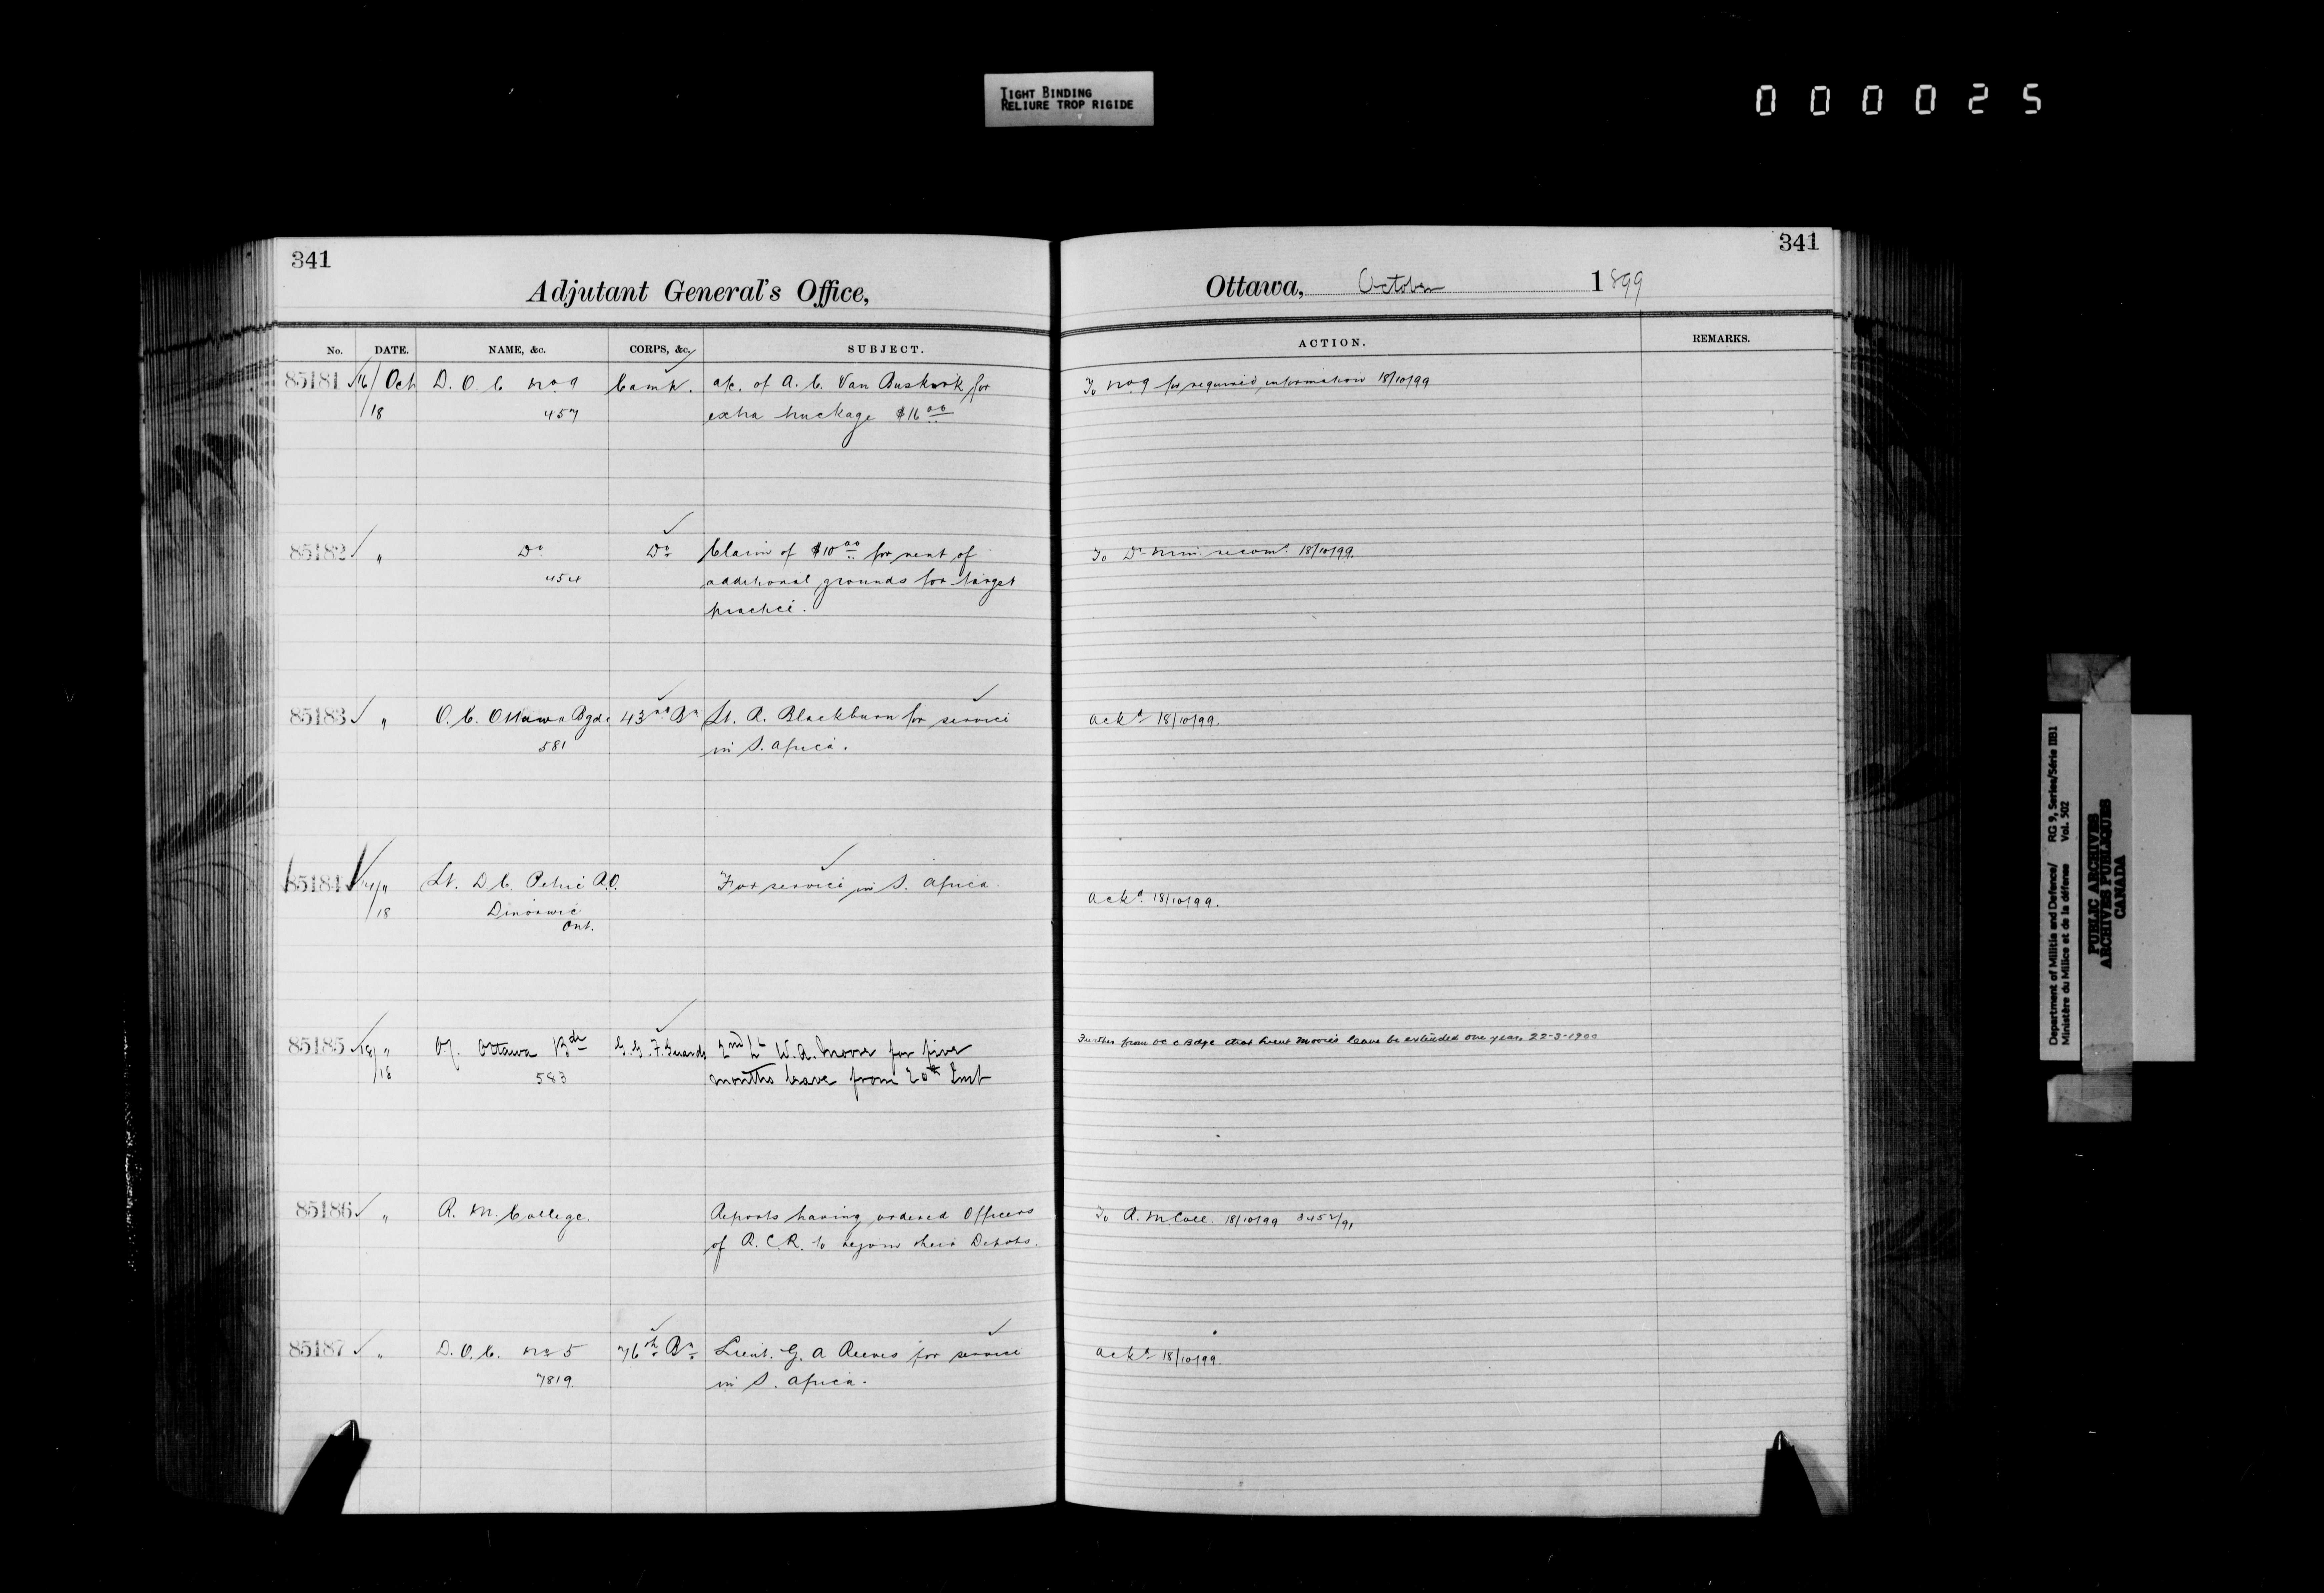 TIGHT BINDING
RELIURE TROP RIGIDE
000025
341
Adjutant General's Office,
No. DATE. NAME, &c. CORPS, &c. SUBJECT.
85181 16/ Oct D. O. C No 9 Camp. a/c. of A. C. Van Buskirk for
18 457 extra truckage $16.00
85182 " Do Do Claim of $10.00 for rent of
454 additional grounds for target
practice.
85183 " O. C. Ottawa Bgde 43rd Bn Lt. R. Blackburn for service
581 in S. Africa.
85184 " Lt. D C. Petrie R.O. For service in S. Africa
18 Dinorwic
Ont.
85185 18/ " O.C. Ottawa Bde G. G. F. Guards 2nd Lt W. A. Moore for five
18 583 months leave from 20th Inst
85186 " R. M. College. Reports having ordered Officers
of R. C. R. to rejoin their Depots.
85187 " D. O. C. No 5 76th Bn Lieut. G. A Reeves for service
7819 in S. Africa.
341
Ottawa, October 1899
ACTION. REMARKS.
To No 9 for required information 18/10/99
To Dr Min. recomd 18/10/99.
Ackd 18/10/99.
Ackd 18/10/99.
Further from OC O Bdge that Lieut Moore's leave be extended one year. 22-3-1900
To R. M Coll. 18/10/99
Ackd 18/10/99.
Department of Militia and Defence/ RG 9, Series/Série IIB1
Ministère du Milice et de la défense Vol. 502
PUBLIC ARCHIVES
ARCHIVES PUBLIQUES
CANADA